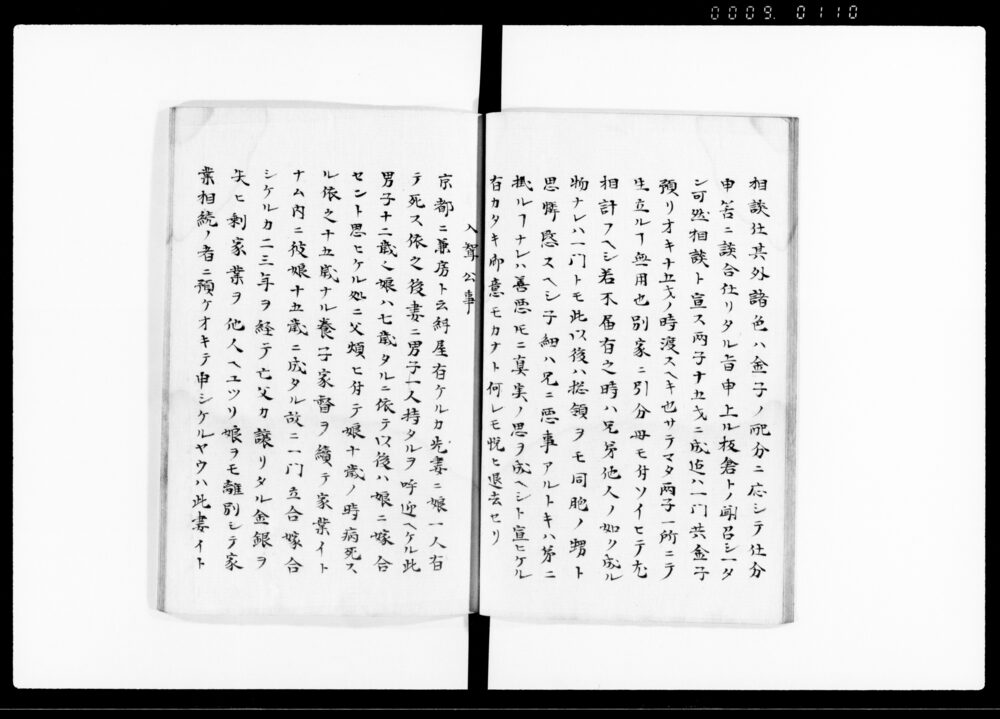 0009. 0110
相談仕其外諸色ハ金子ノ配分ニ応シテ仕分
申筈ニ談合仕リタル旨申上ル板倉トノ両召シ一タ
シ可然相談ト宣ス両子十五才ニ成迄ハ一門共金子
預リオキ十五才ノ時渡スヘキ也サラマタ両子一所ニテ
生立ルヿ無用也別家ニ引分母モ付ソイヒテ尤
相計フヘシ若不届有之時ハ兄弟他人ノ如ク成ル
物ナレハ一門トモ此以後ハ惣領ヲモ同胞ノ甥ト
思憐愍スヘシ子細ハ兄ニ悪事アルトキハ弟ニ
掛ルヿナレハ善悪トモニ真実ノ思ヲ成ヘシト宣ヒケル
有カタキ御意モカナト何レモ悦ヒ退去セリ
入聟公事
京都ニ兼房ト云紺屋有ケルカ先妻ニ娘一人有
テ死ス依之後妻ニ男子一人持タルヲ呼迎ヘケル此
男子十二歳之娘ハ七歳タルニ依テ以後ハ娘ニ嫁合
セント思ヒケル処ニ父煩ヒ付テ娘十歳ノ時病死ス
ル依之十五歳ナル養子家督ヲ續テ家業イト
ナム内ニ彼娘十五歳ニ成タル故ニ一門立合嫁合
シケルカ二三年ヲ経テ亡父カ譲リタル金銀ヲ
失ヒ剰家業ヲ他人ヘユツリ娘ヲモ離別シテ家
業相続ノ者ニ預ケオキテ申シケルヤウハ此妻イト